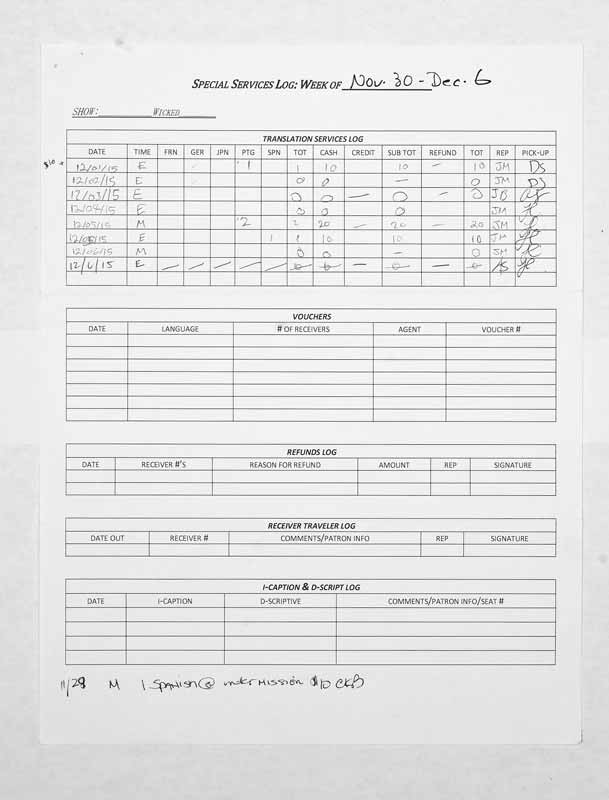 SPECIAL SERVICES LOG: WEEK OF Nov. 30 - Dec. 6
SHOW: WICKED
TRANSLATION SERVICES LOG
DATE TIME FRN GER JPN PTG SPN TOT CASH CREDIT SUB TOT REFUND TOT REP PICK-UP
12/01/15 E 1 1 10 10 – 10 JM DS
12/02/15 E 0 0 – 0 JM DS
12/03/15 E 0 0 – 0 – 0 JB
12/04/15 E 0 0 0 JM
12/05/15 M 2 2 20 – 20 – 20 JM
12/05/15 E 1 1 10 10 10 JM
12/06/15 M 0 0 – 0 JM
12/6/15 E – – – – – 0 0 – 0 – 0 AS
VOUCHERS
DATE LANGUAGE # OF RECEIVERS AGENT VOUCHER #
REFUNDS LOG
DATE RECEIVER #'S REASON FOR REFUND AMOUNT REP SIGNATURE
RECEIVER TRAVELER LOG
DATE OUT RECEIVER # COMMENTS/PATRON INFO REP SIGNATURE
I-CAPTION & D-SCRIPT LOG
DATE I-CAPTION D-SCRIPTIVE COMMENTS/PATRON INFO/SEAT #
11/28 M 1 Spanish @ intermission $10 CKB